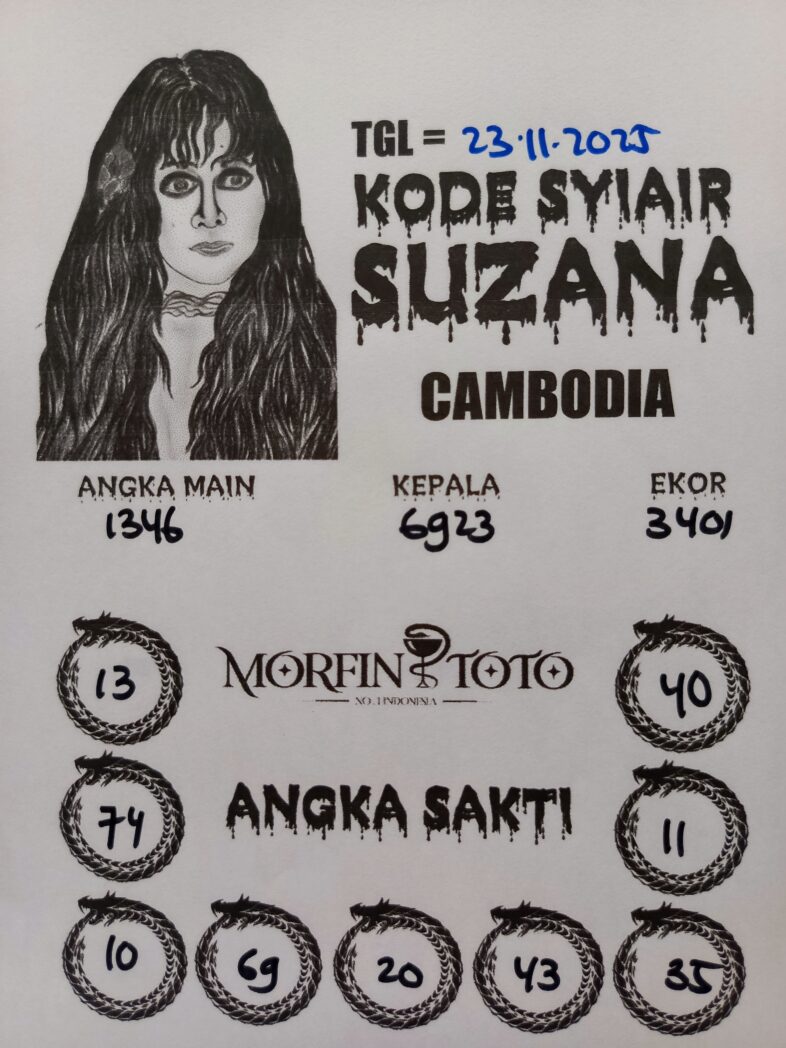 TGL = 23.11.2025
KODE SYIAIR
SUZANA
CAMBODIA
ANGKA MAIN KEPALA EKOR
1346 6923 3401
13 MORFIN TOTO 40
NO.1 INDONESIA
74 ANGKA SAKTI 11
10 69 20 43 35